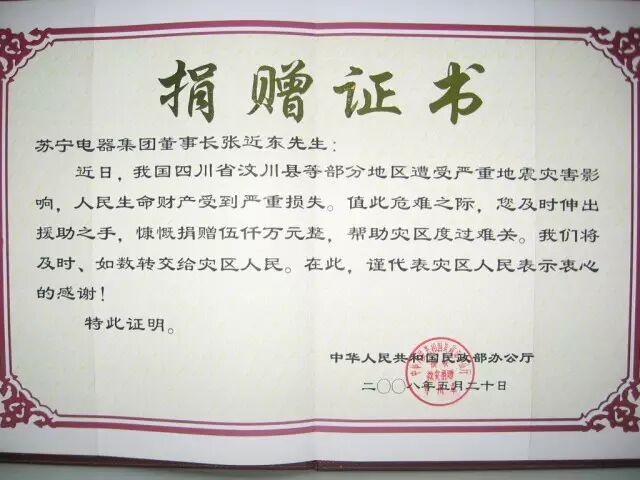 捐赠证书
苏宁电器集团董事长张近东先生：
近日，我国四川省汶川县等部分地区遭受严重地震灾害影
响，人民生命财产受到严重损失。值此危难之际，您及时伸出
援助之手，慷慨捐赠伍仟万元整，帮助灾区度过难关。我们将
及时、如数转交给灾区人民。在此，谨代表灾区人民表示衷心
的感谢！
特此证明。
中华人民共和国民政部办公厅
二〇〇八年五月二十日